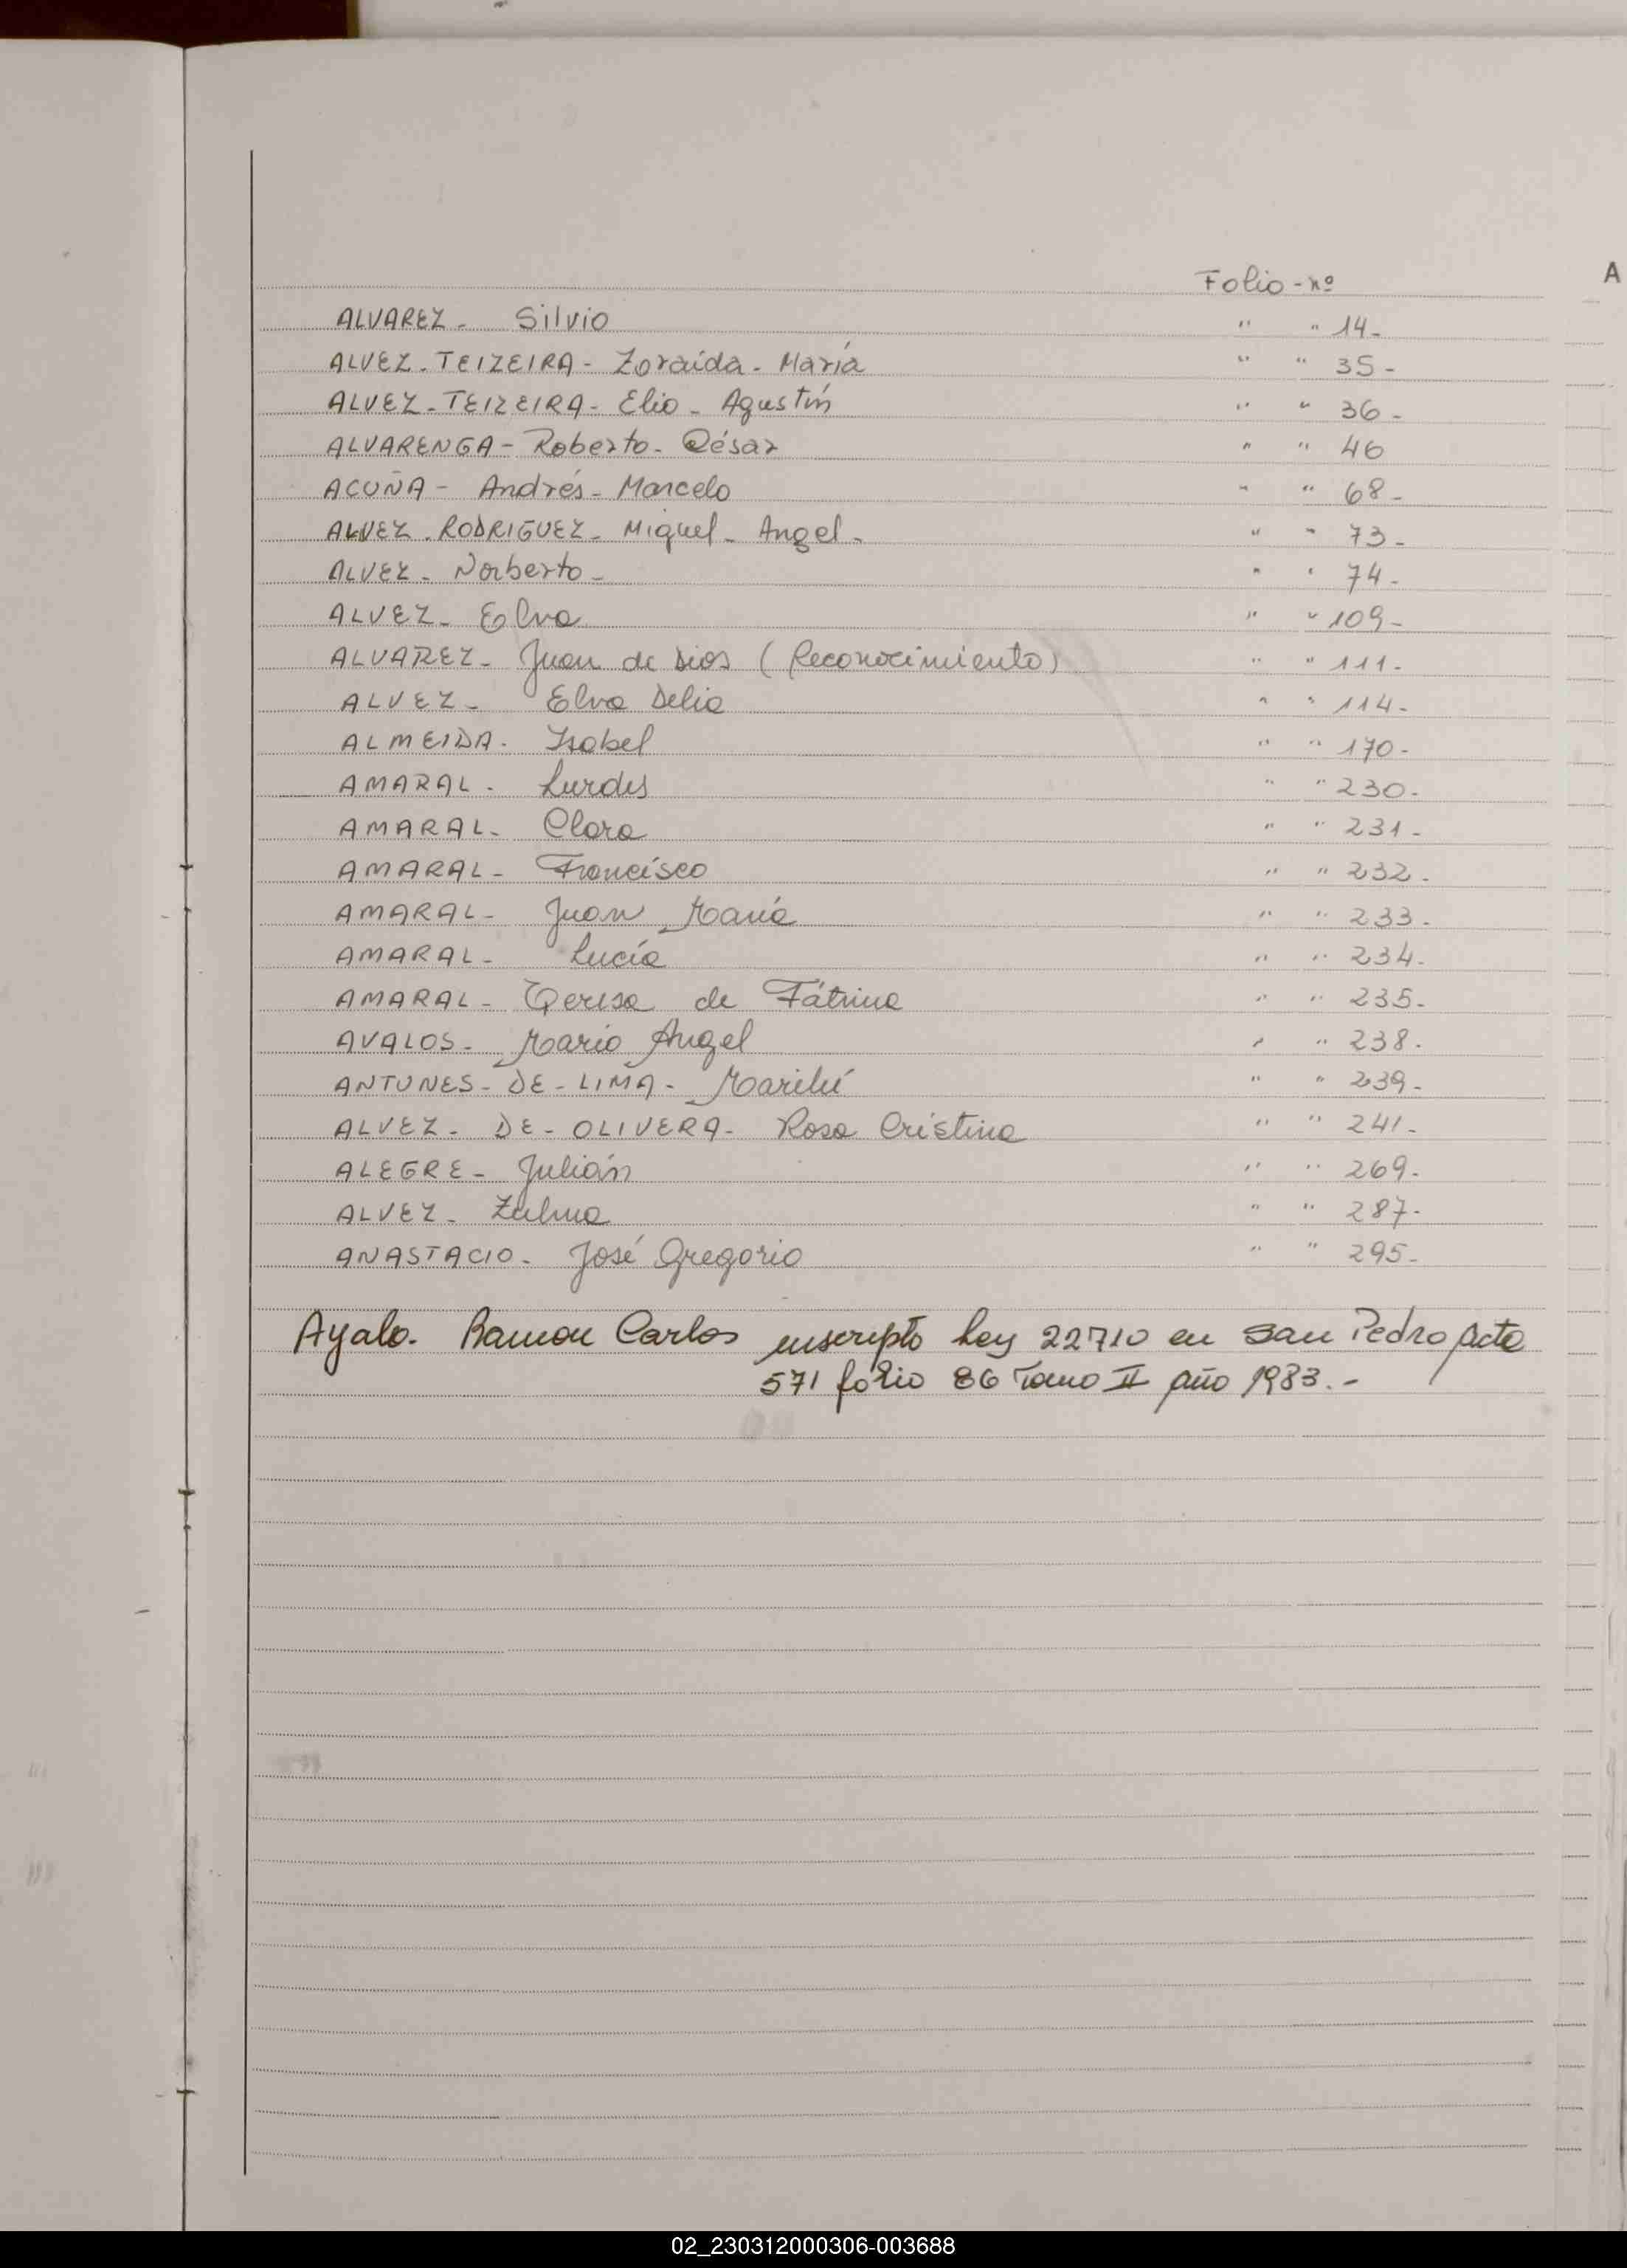 Folio - nº
A
ALVAREZ - Silvio " " 14-
ALVEZ - TEIZEIRA - Zoraida - María " " 35-
ALVEZ - TEIZEIRA - Elio - Agustín " " 36-
ALVARENGA - Roberto - César " " 46
ACUÑA - Andrés - Marcelo " " 68-
ALVEZ - RODRIGUEZ - Miguel - Angel - " " 73-
ALVEZ - Norberto - " " 74-
ALVEZ - Elva " " 109-
ALVAREZ - Juan de Dios (Reconocimiento) " " 111-
ALVEZ - Elva Delia " " 114-
ALMEIDA - Isabel " " 170-
AMARAL - Lurdes " " 230-
AMARAL - Clara " " 231-
AMARAL - Francisco " " 232-
AMARAL - Juan María " " 233-
AMARAL - Lucía " " 234-
AMARAL - Teresa de Fátima " " 235-
AVALOS - Mario Angel " " 238-
ANTUNES - DE - LIMA - Marilú " " 239-
ALVEZ - DE - OLIVERA - Rosa Cristina " " 241-
ALEGRE - Julián " " 269-
ALVEZ - Zulma " " 287-
ANASTACIO - José Gregorio " " 295-
Ayala. Ramon Carlos inscripto ley 22710 en San Pedro Acta
571 folio 86 Tomo II año 1983.-
02_230312000306-003688